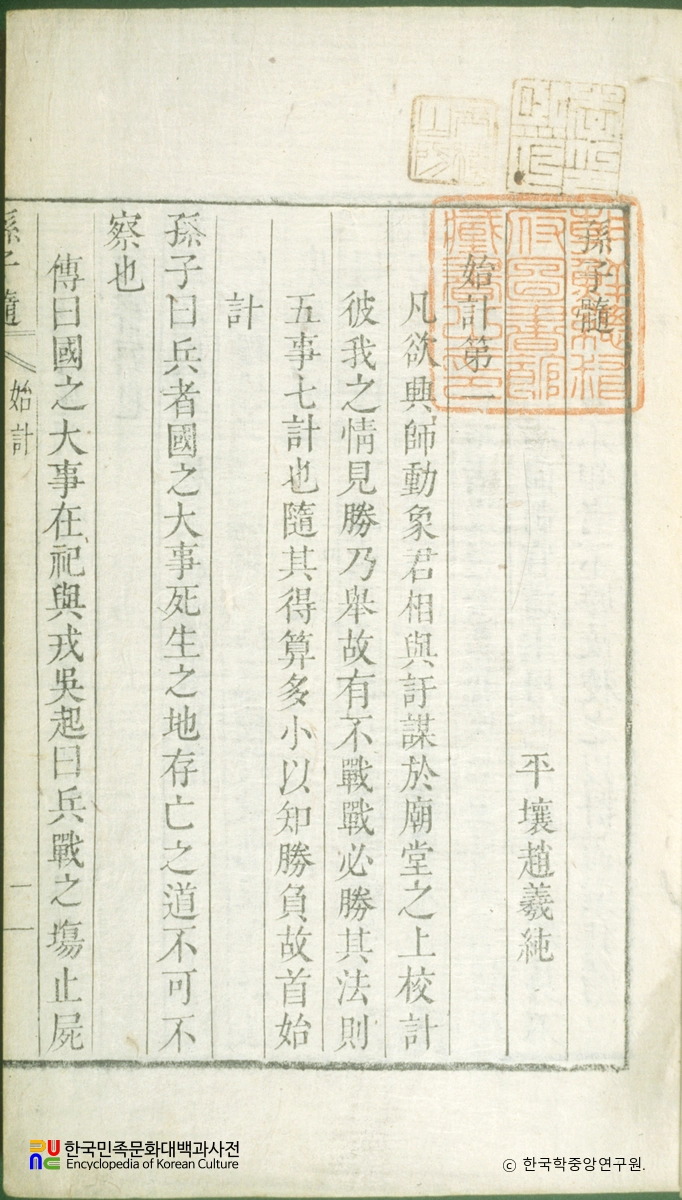 孫子髓
平壤趙羲純
始計第一
凡欲興師動象君相與訏謀於廟堂之上校計
彼我之情見勝乃舉故有不戰戰必勝其法則
五事七計也隨其得算多小以知勝負故首始
計
孫子曰兵者國之大事死生之地存亡之道不可不
察也
傳曰國之大事在祀與戎吳起曰兵戰之塲止屍
孫子髓
始計
一
朝鮮總督府圖書館藏書之印
한국민족문화대백과사전
Encyclopedia of Korean Culture
© 한국학중앙연구원.